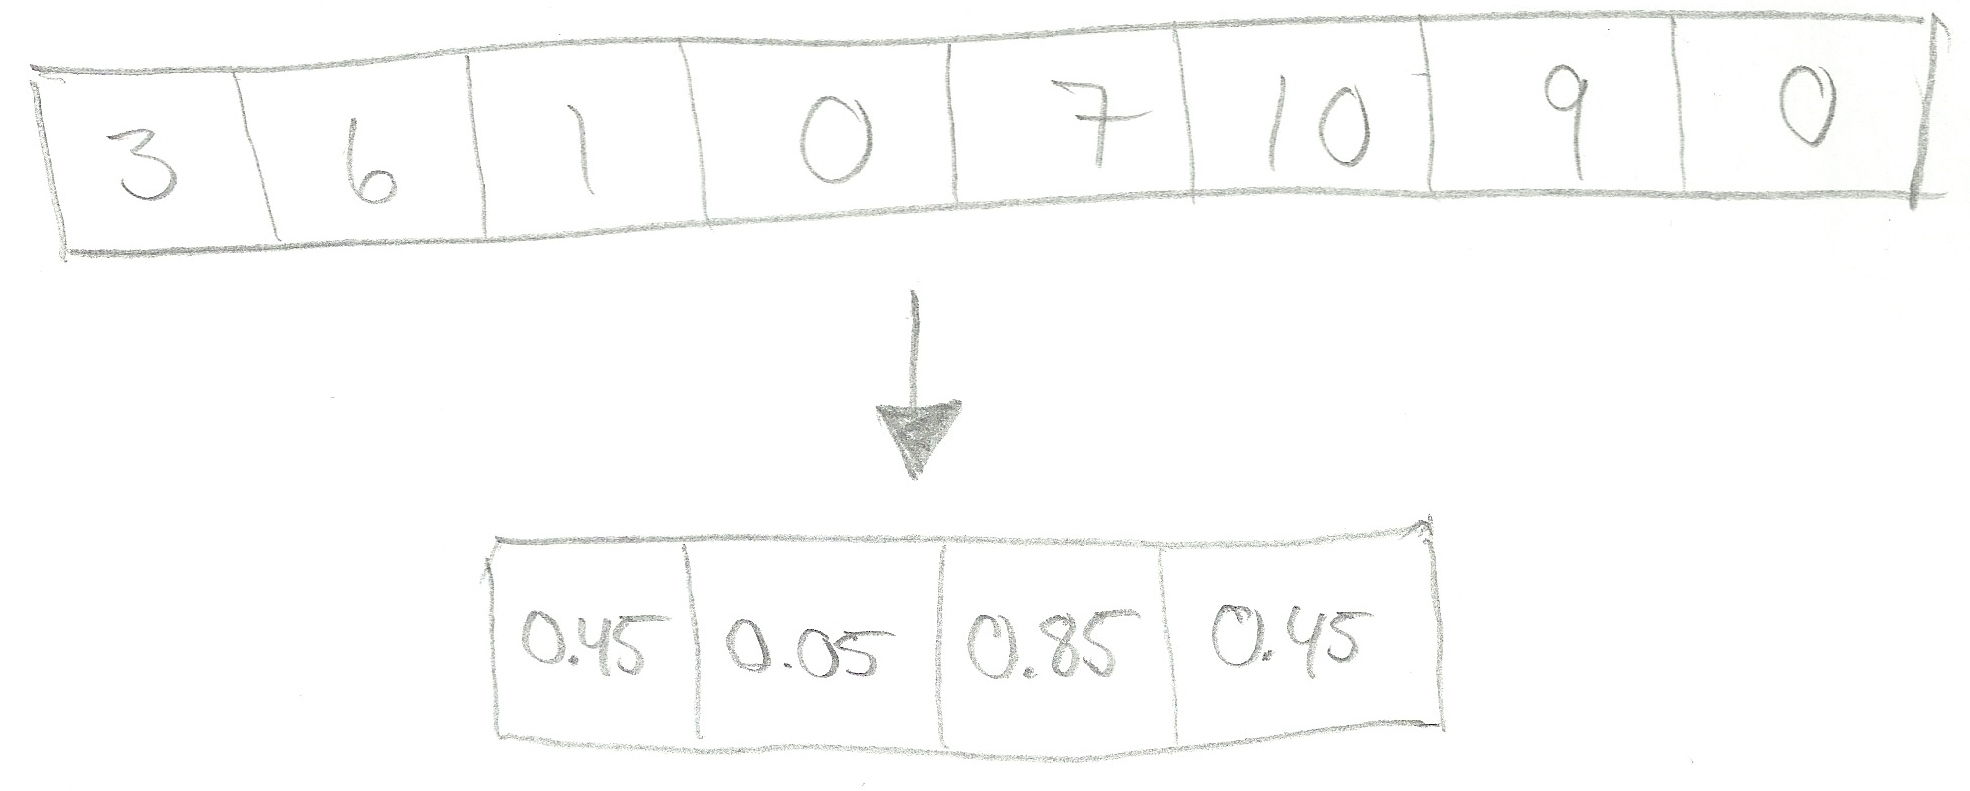 3 6 1 0 7 10 9 0
0.45 0.05 0.85 0.45